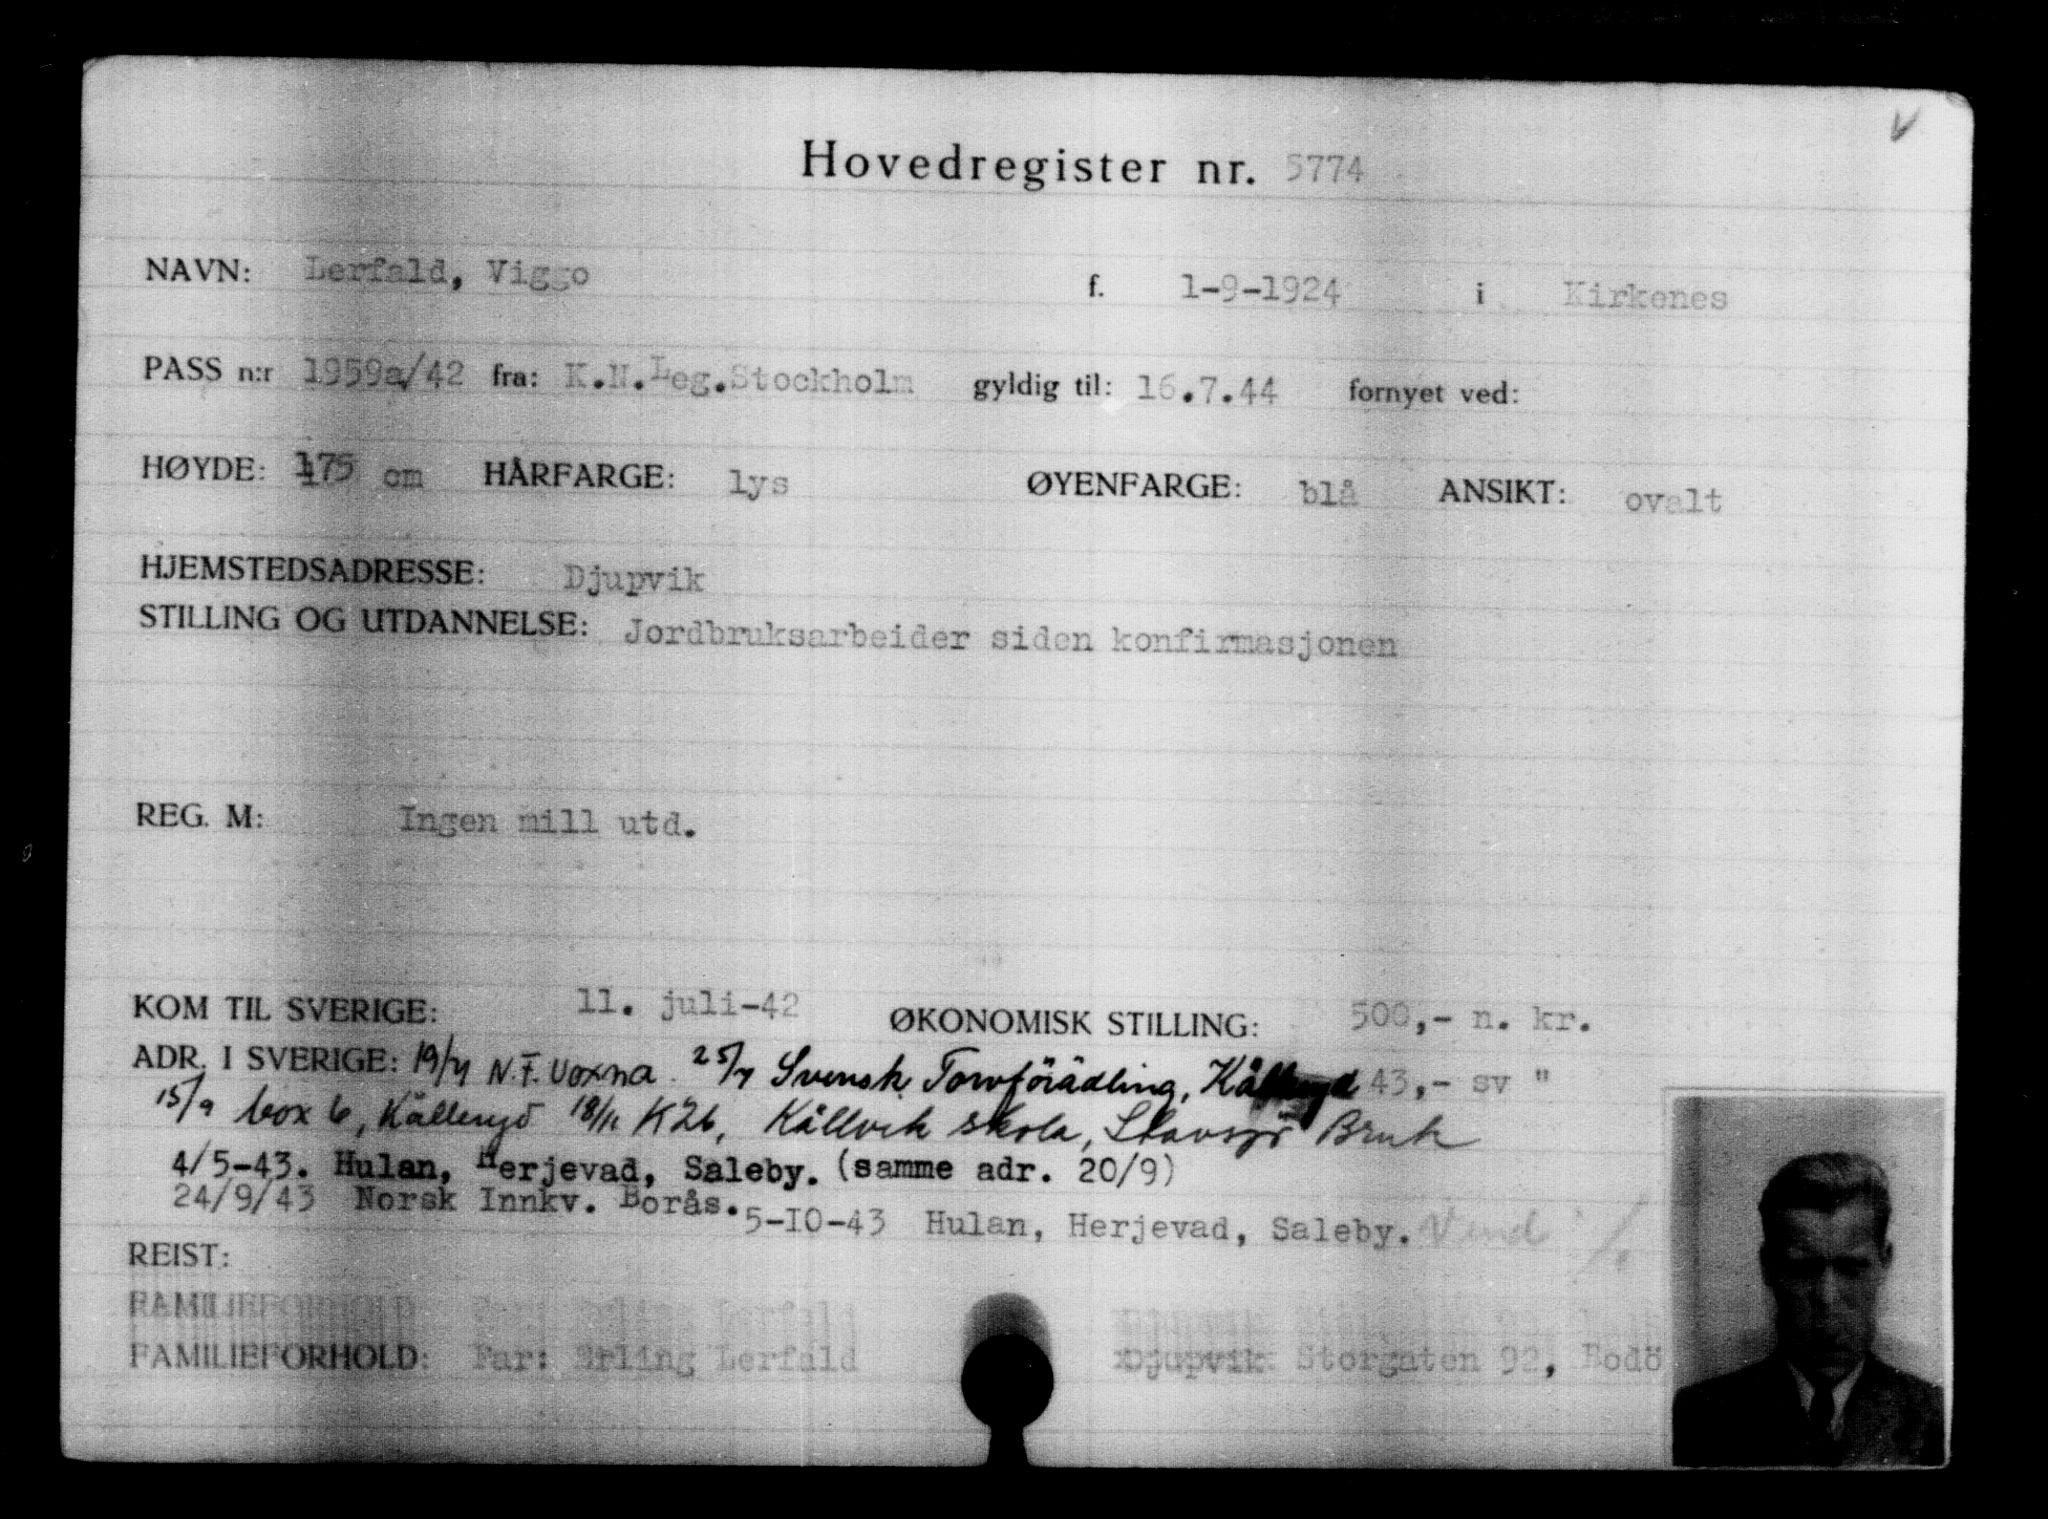 Hovedregister nr. 5774
NAVN: Lerfald, Viggo f. 1-9-1924 i Kirkenes
PASS n:r 1959a/42 fra: K.N.Leg.Stockholm gyldig til: 16.7.44 fornyet ved:
HØYDE: 175 cm HÅRFARGE: lys ØYENFARGE: blå ANSIKT: ovalt
HJEMSTEDSADRESSE: Djupvik
STILLING OG UTDANNELSE: Jordbruksarbeider siden konfirmasjonen
REG. M: Ingen mill utd.
KOM TIL SVERIGE: 11. juli-42 ØKONOMISK STILLING: 500,- n. kr.
ADR. I SVERIGE: 19/7 N.F. Voxna. 25/7 Svensk Torvförädling, Kålleryd 43,- sv "
15/9 box 6, Kålleryd 18/11 K26, Källvik skola, Stavsjö Bruk
4/5-43. Hulan, Herjevad, Saleby. (samme adr. 20/9)
24/9/43 Norsk Innkv. Borås. 5-10-43 Hulan, Herjevad, Saleby. Vend
REIST:
FAMILIEFORHOLD: Far: Erling Lerfald Djupvik Storgaten 92, Bodö